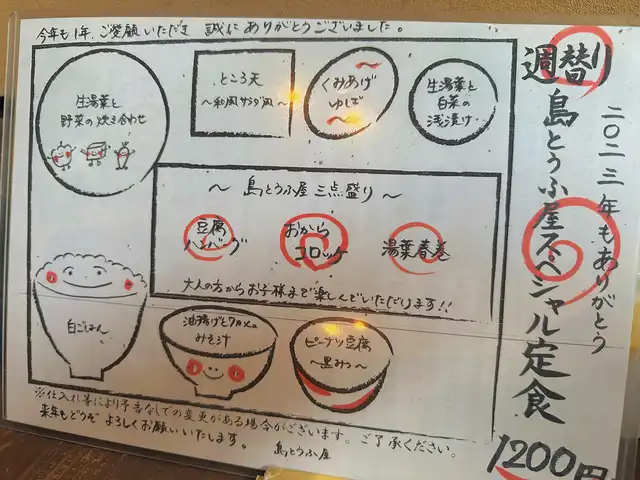 今年も1年、ご愛顧いただき 誠にありがとうございました。
週替り 島とうふ屋スペシャル定食
1200円
二〇二二年もありがとう
生湯葉と
野菜の炊き合わせ
ところ天
〜和風サラダ風〜
くみあげ
ゆしどーふ
生湯葉と
白菜の
浅漬け
〜 島とうふ屋 三点盛り 〜
豆腐
ハンバーグ
おから
コロッケ
湯葉春巻
大人の方からお子様まで楽しんでいただけます!!
白ごはん
油揚げとワカメの
みそ汁
ピーナツ豆腐
〜黒みつ〜
※仕入れ等により予告なしでの変更がある場合がございます。ご了承ください。
来年もどうぞ よろしくお願いいたします。
島とうふ屋